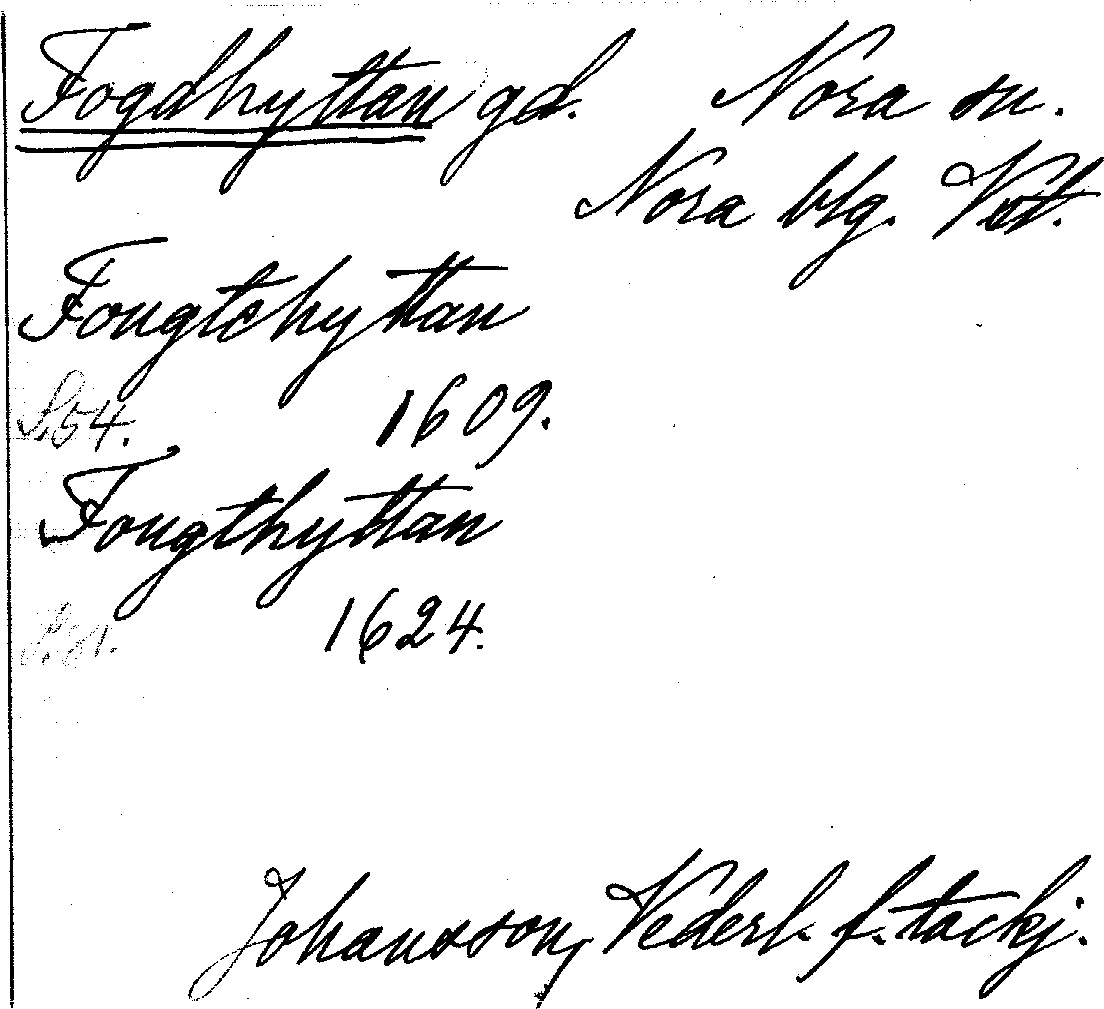 Fogdhyttan gd. Nora sn.
Nora blg. Vstl.
Fougtehyttan
S. 54. 1609.
Fougthyttan
1624.
Johansson, Vederl. f. tackj.